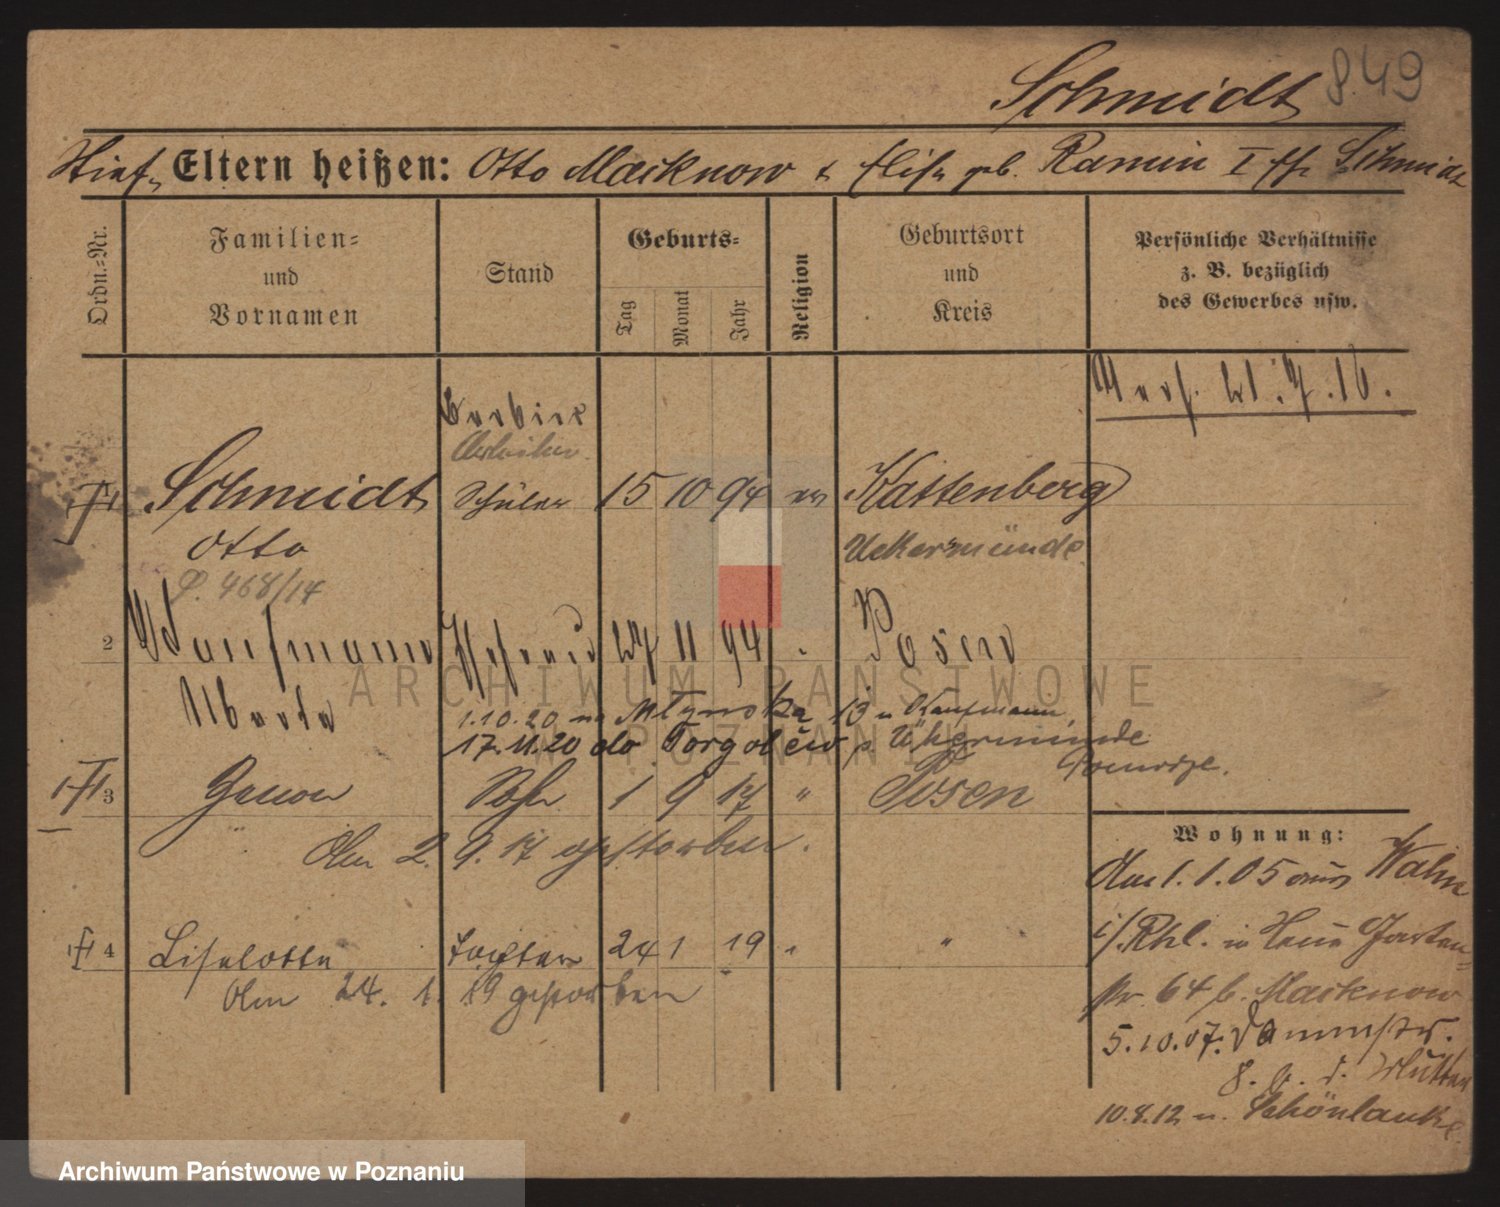 Schmidt 849
Stief- Eltern heißen: Otto Macknow & Elise geb. Ramin I Schmidt
Ordn.-Nr.
Familien-
und
Vornamen
Stand
Geburts-
Tag
Monat
Jahr
Religion
Geburtsort
und
Kreis
Persönliche Verhältnisse
z. B. bezüglich
des Gewerbes usw.
Arbeiter
1 Schmidt Schüler 15 10 94 ev Kattenberg
Otto Uekermünde
P. 468/14
2 Kaufmann Ehefrau 27 11 94 " Posen
Martha
1.10.20 na Młyńska 13 u Kaufmann
17.11.20 do Torgelow p. Ükermünde
3 Sohn 1 9 17 " Posen
Am 2. 9. 17 gestorben.
4 Liselotte Tochter 24 1 19 " "
Am 24. 1. 19 gestorben
Wohnung:
Am 1. 1. 05 aus Wahn
i/Rhl. in Neue Garten=
str. 64 b. Macknow
5.10.07. Dammstr.
8. b. d. Mutter
10.8.12 n. Schönlanke.
ARCHIWUM PAŃSTWOWE
W POZNANIU
Archiwum Państwowe w Poznaniu